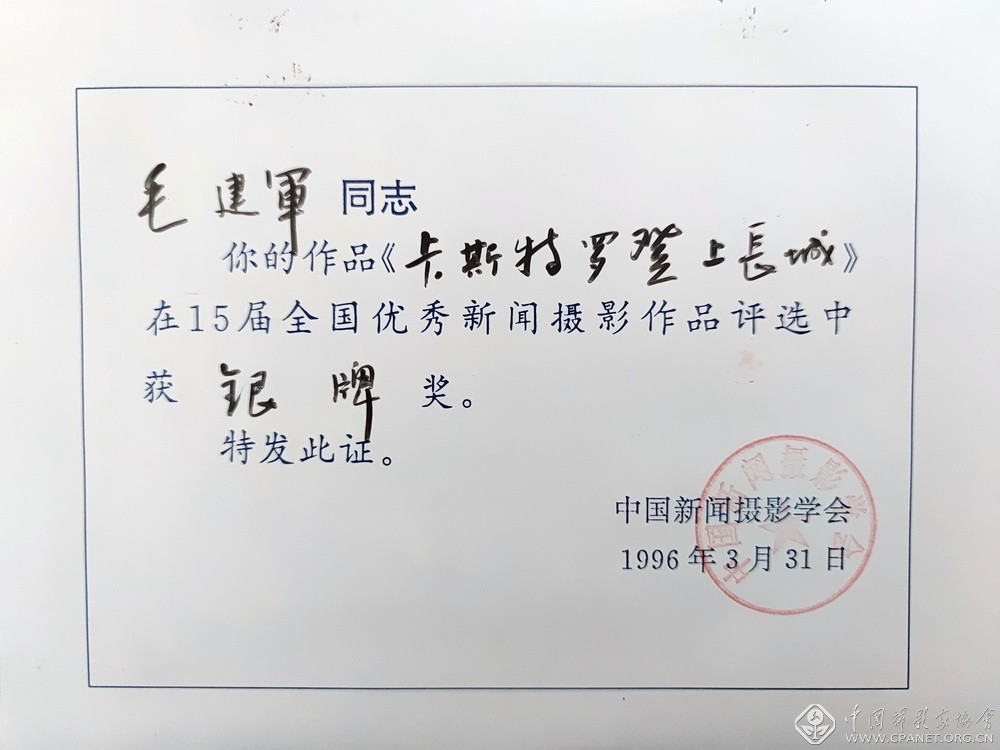 毛建軍同志
你的作品《卡斯特罗登上長城》
在15届全国优秀新闻摄影作品评选中
获银牌奖。
特发此证。
中国新闻摄影学会
1996年3月31日
中国新闻摄影学会
中国摄影家协会
WWW.CPANET.ORG.CN